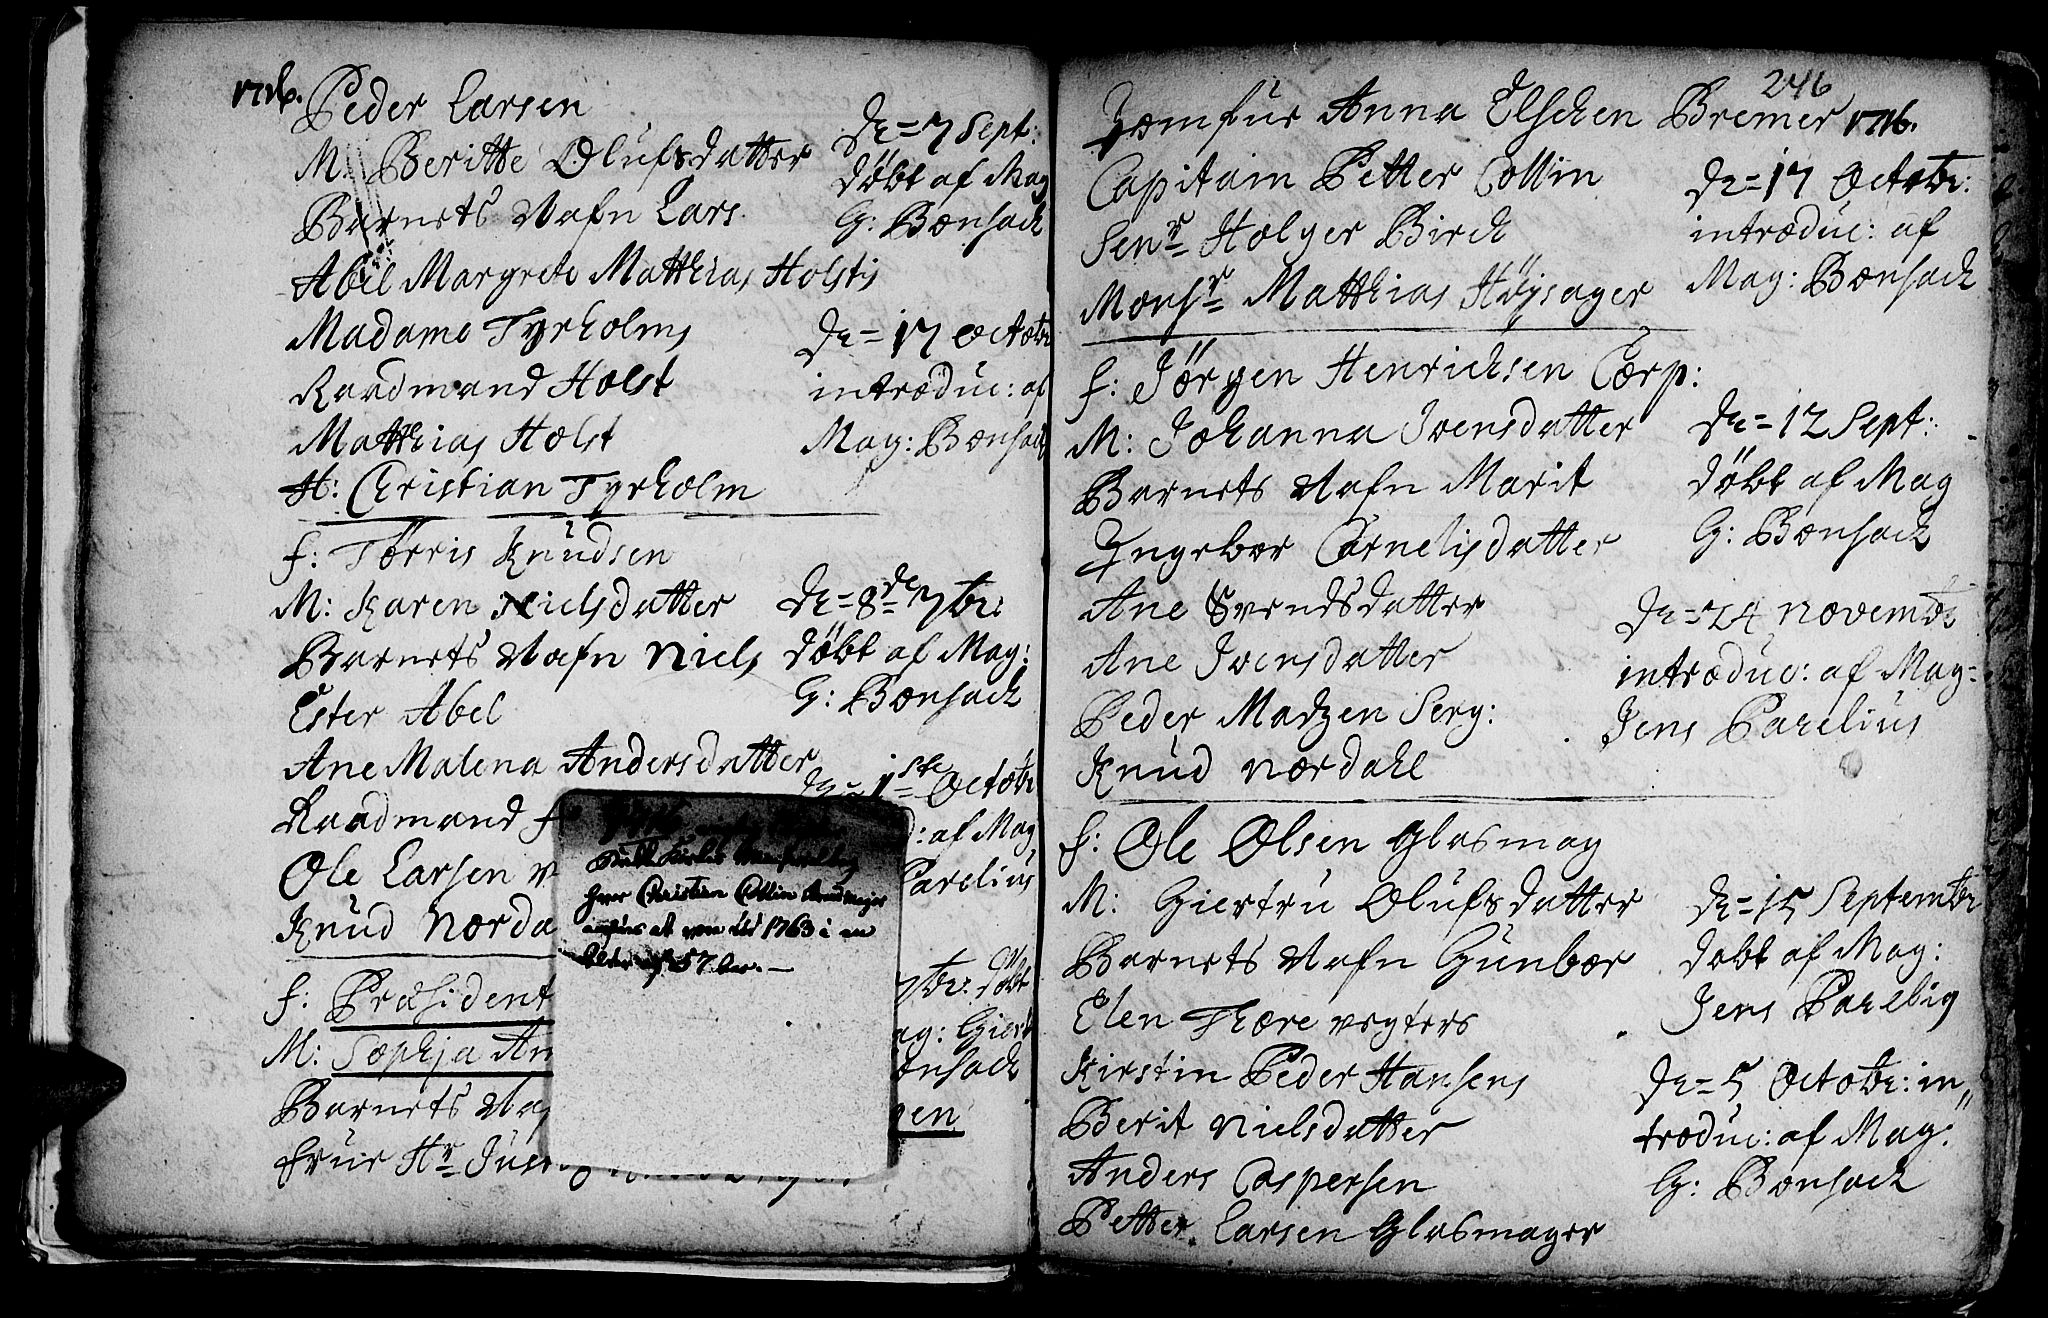 1716.
Peder Larsen
M: Beritte Olufsdatter
Barnets Nafn Lars
Abel Margrete Matthias Holstis
Madame Tyrholms
Raadmand Holst
Matthias Holst
H: Christian Tyrholm
D. = 7 Sept:
døbt af Mag
G: Bonsach
D. = 17 Octobr
introduc: af
Mag: Bonsach
f: Torris Knudsen
M: Karen Nielsdatter
Barnets Nafn Niels
Ester Abel
Ane Malena Andersdatter
Raadmand f
Ole Larsen
Knud Norda
D. = 8de 7br:
døbt af Mag:
G: Bonsach
D. = 1ste Octobr
: af Mag
Parelius
f: Præsident
M: Sophja An
Barnets Na
frue Hr Jus
7br. døbt
ag: Giert
onsach
en
1716
Christian Collin
1763 i en
Alder af 57 Aar. —
246
Jomfue Anna Elschen Bremer 1716.
Capitain Petter Collin
Senr Holger Birch
Monsr Matthias Høysager
D. = 17 Octobr:
introduc: af
Mag: Bonsach
f: Jörgen Henrichsen Corp:
M: Johanna Ivensdatter
Barnets Nafn Marit
Ingebor Cornelisdatter
Ane Svendsdatter
Ane Ivensdatter
Peder Madzen Serg:
Knud Nordahl
D. = 12 Sept:
døbt af Mag
G: Bonsach
D. = 24 Novembr
introduc: af Mag=
Jens Parelius
f: Ole Olsen Glasmag
M: Giertru Olufsdatter
Barnets Nafn Gunbor
Elen Thore vegters
Kirstin Peder Hansens
Berit Nielsdatter
Anders Caspersen
Petter Larsen Glasmager
D. = 15 Septembr
døbt af Mag:
Jens Parelius
D. = 5 Octobr: in„
troduc: af Mag:
G: Bonsach